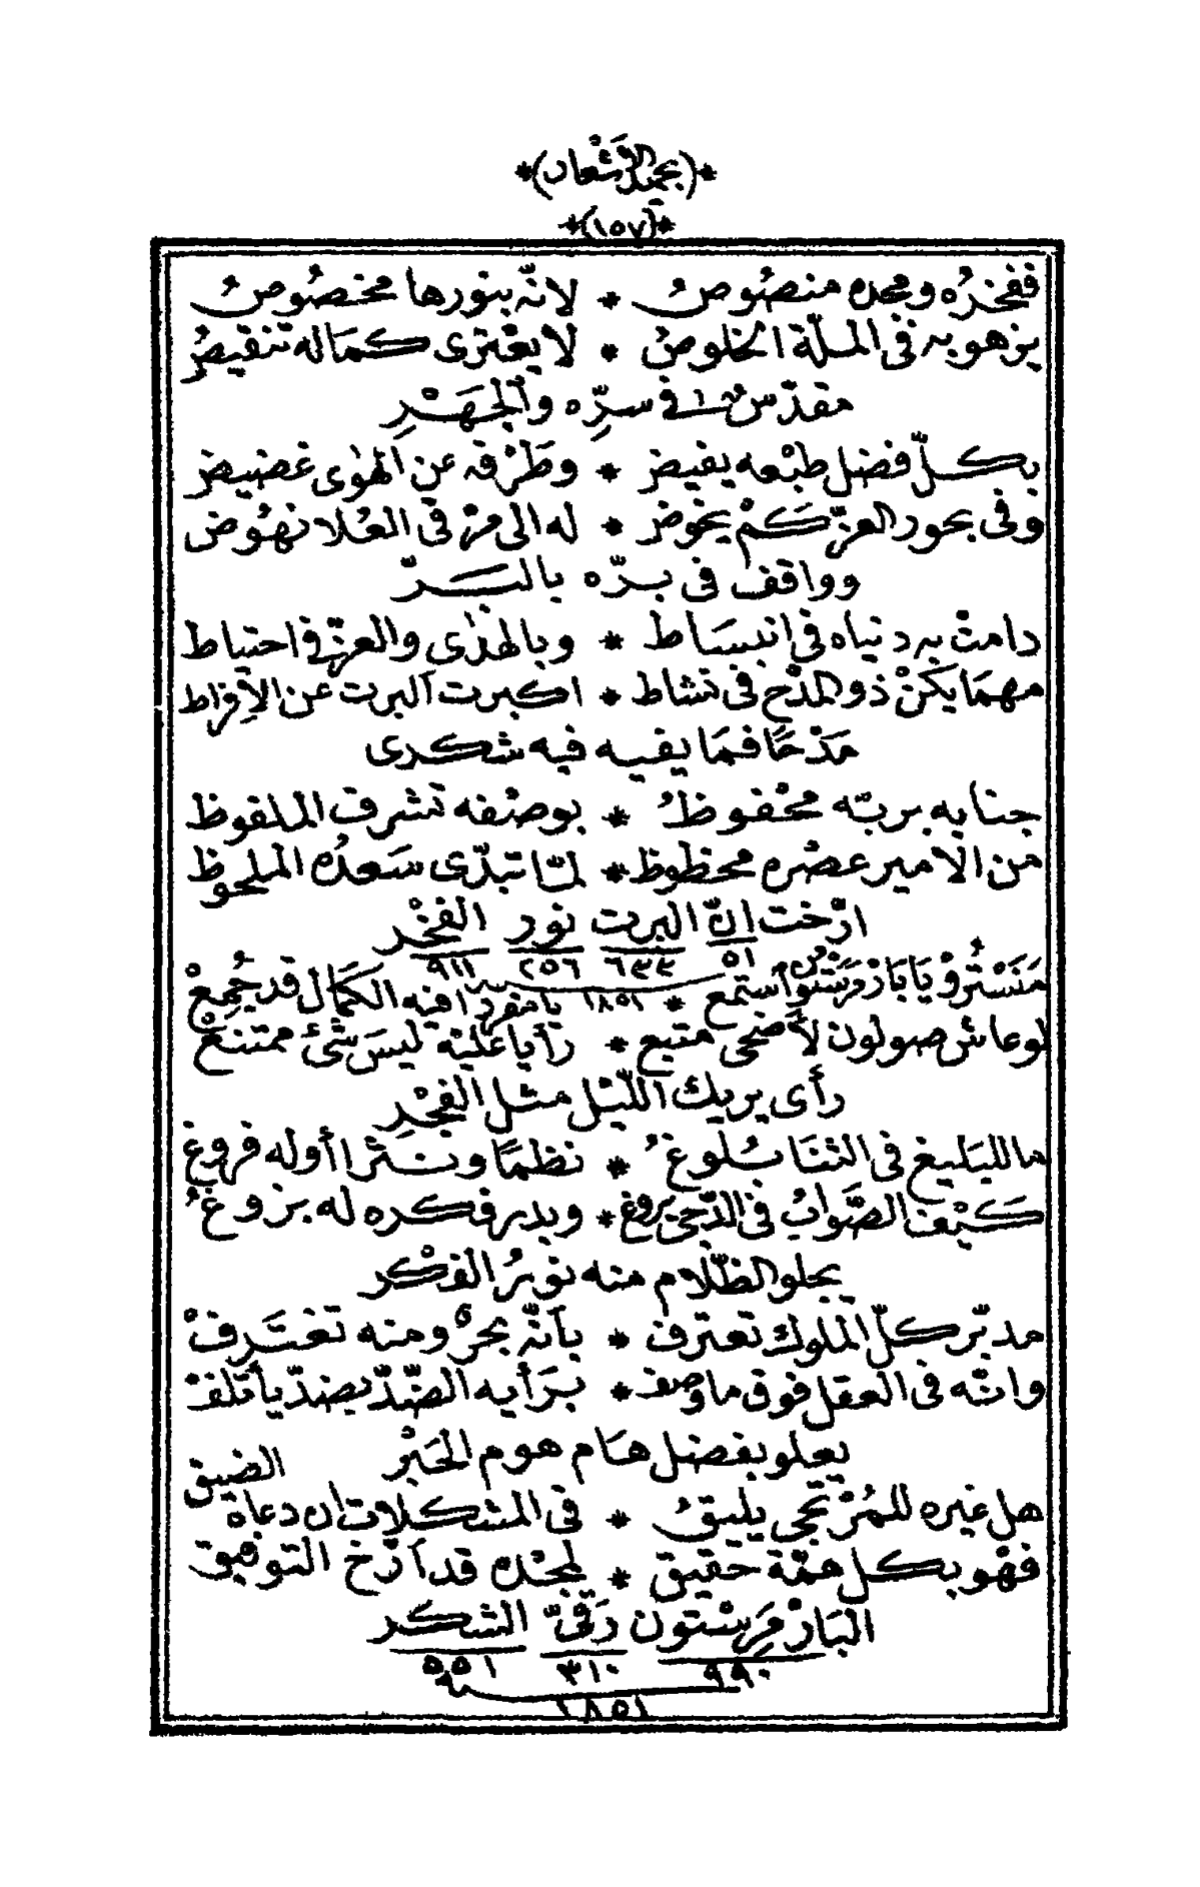 *(بحميد الاشعار)*
*(١٥٧)*
ففخرُه ومجده منصُوصُ * لانّه بنورها مخصُوصُ
يزهو به فى الملّة الخلوصُ * لا يعْترى كماله تنقيصُ
مقدّسٌ فى سرِّه والجَهْرِ
بكلّ فضل طبْعه يفيض * وطَرْفه عن الهوٰى غضيض
وفى بحور العزّ كَمْ يخوض * له الى مرْقى العُلا نهُوض
وواقف فى برّه بالسرّ
دامتْ به دنياه فى انبسَاط * وبالهنٰى والعزّ فى احتياط
مهمَا يكنْ ذو المدْح فى نشاط * اكبرت ألبرت عن الاِفراط
مَدْحًا فمَا يفيه فيه شكرى
جنابه بربّه محْفوظُ * بوصْفه تشرف الملفوظ
من الأمير عصْره محظوظ * لمّا تبدّى سَعدُه الملحوظ
ارّخت انّ البرت نور الفخْر
٥١ ٦٣٣ ٢٥٦ ٩١١
١٨٥١
مَنَسْتُرُوْ يَا بَازْ مرَسْتُو استمع * يا منفردًا فيه الكمَال قد جُمِعْ
لوعاش صولون لأضحى متبع * رأيا عليْه ليسَ شئ ممتنعْ
رأى يريك اللّيْل مثل الفجْرِ
ما للبَليغ فى الثنَا بُلوغُ * نظمًا ونثرا أوله فروغ
كيْف الصَّوابُ فى الدّجى يروغ * وبدر فكره له بزوغُ
يجلو الظّلام منه نورُ الفكْر
مدبّر كلّ الملوك تعترف * بأنّه بحرٌ ومنه تغتَرفْ
وانّه فى العقل فوق ما وصف * برَأيه الضّدّ بضدّ يأتلفْ
يعلو بفضل هَام هوم الحَبْر
هل غيره للمُرْتجى يليقُ * فى المشكلات ان دعاه الضيق
فهْو بكل همّة حقيق * لمجْده قد أرّخ التوفيق
البَازْ مَرِسْتون رَقىّ الشكر
٩٩٠ ٣١٠ ٥٥١
١٨٥١